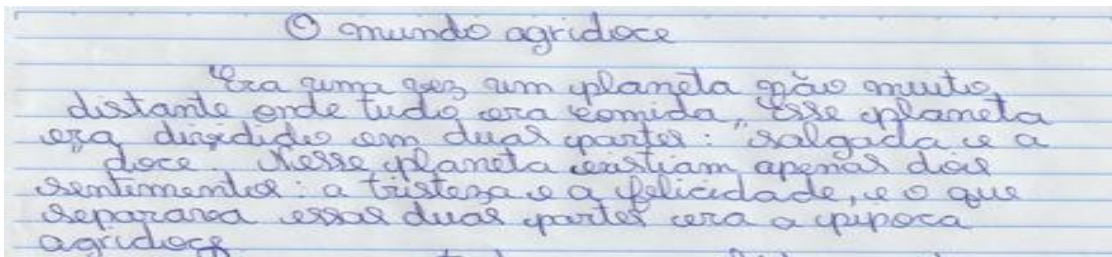 O mundo agridoce
Era uma vez um planeta não muito
distante onde tudo era comida, esse planeta
era dividido em duas partes: "salgada e a
doce. Nesse planeta existiam apenas dois
sentimentos: a tristeza e a felicidade, e o que
separava essas duas partes era a pipoca
agridoce